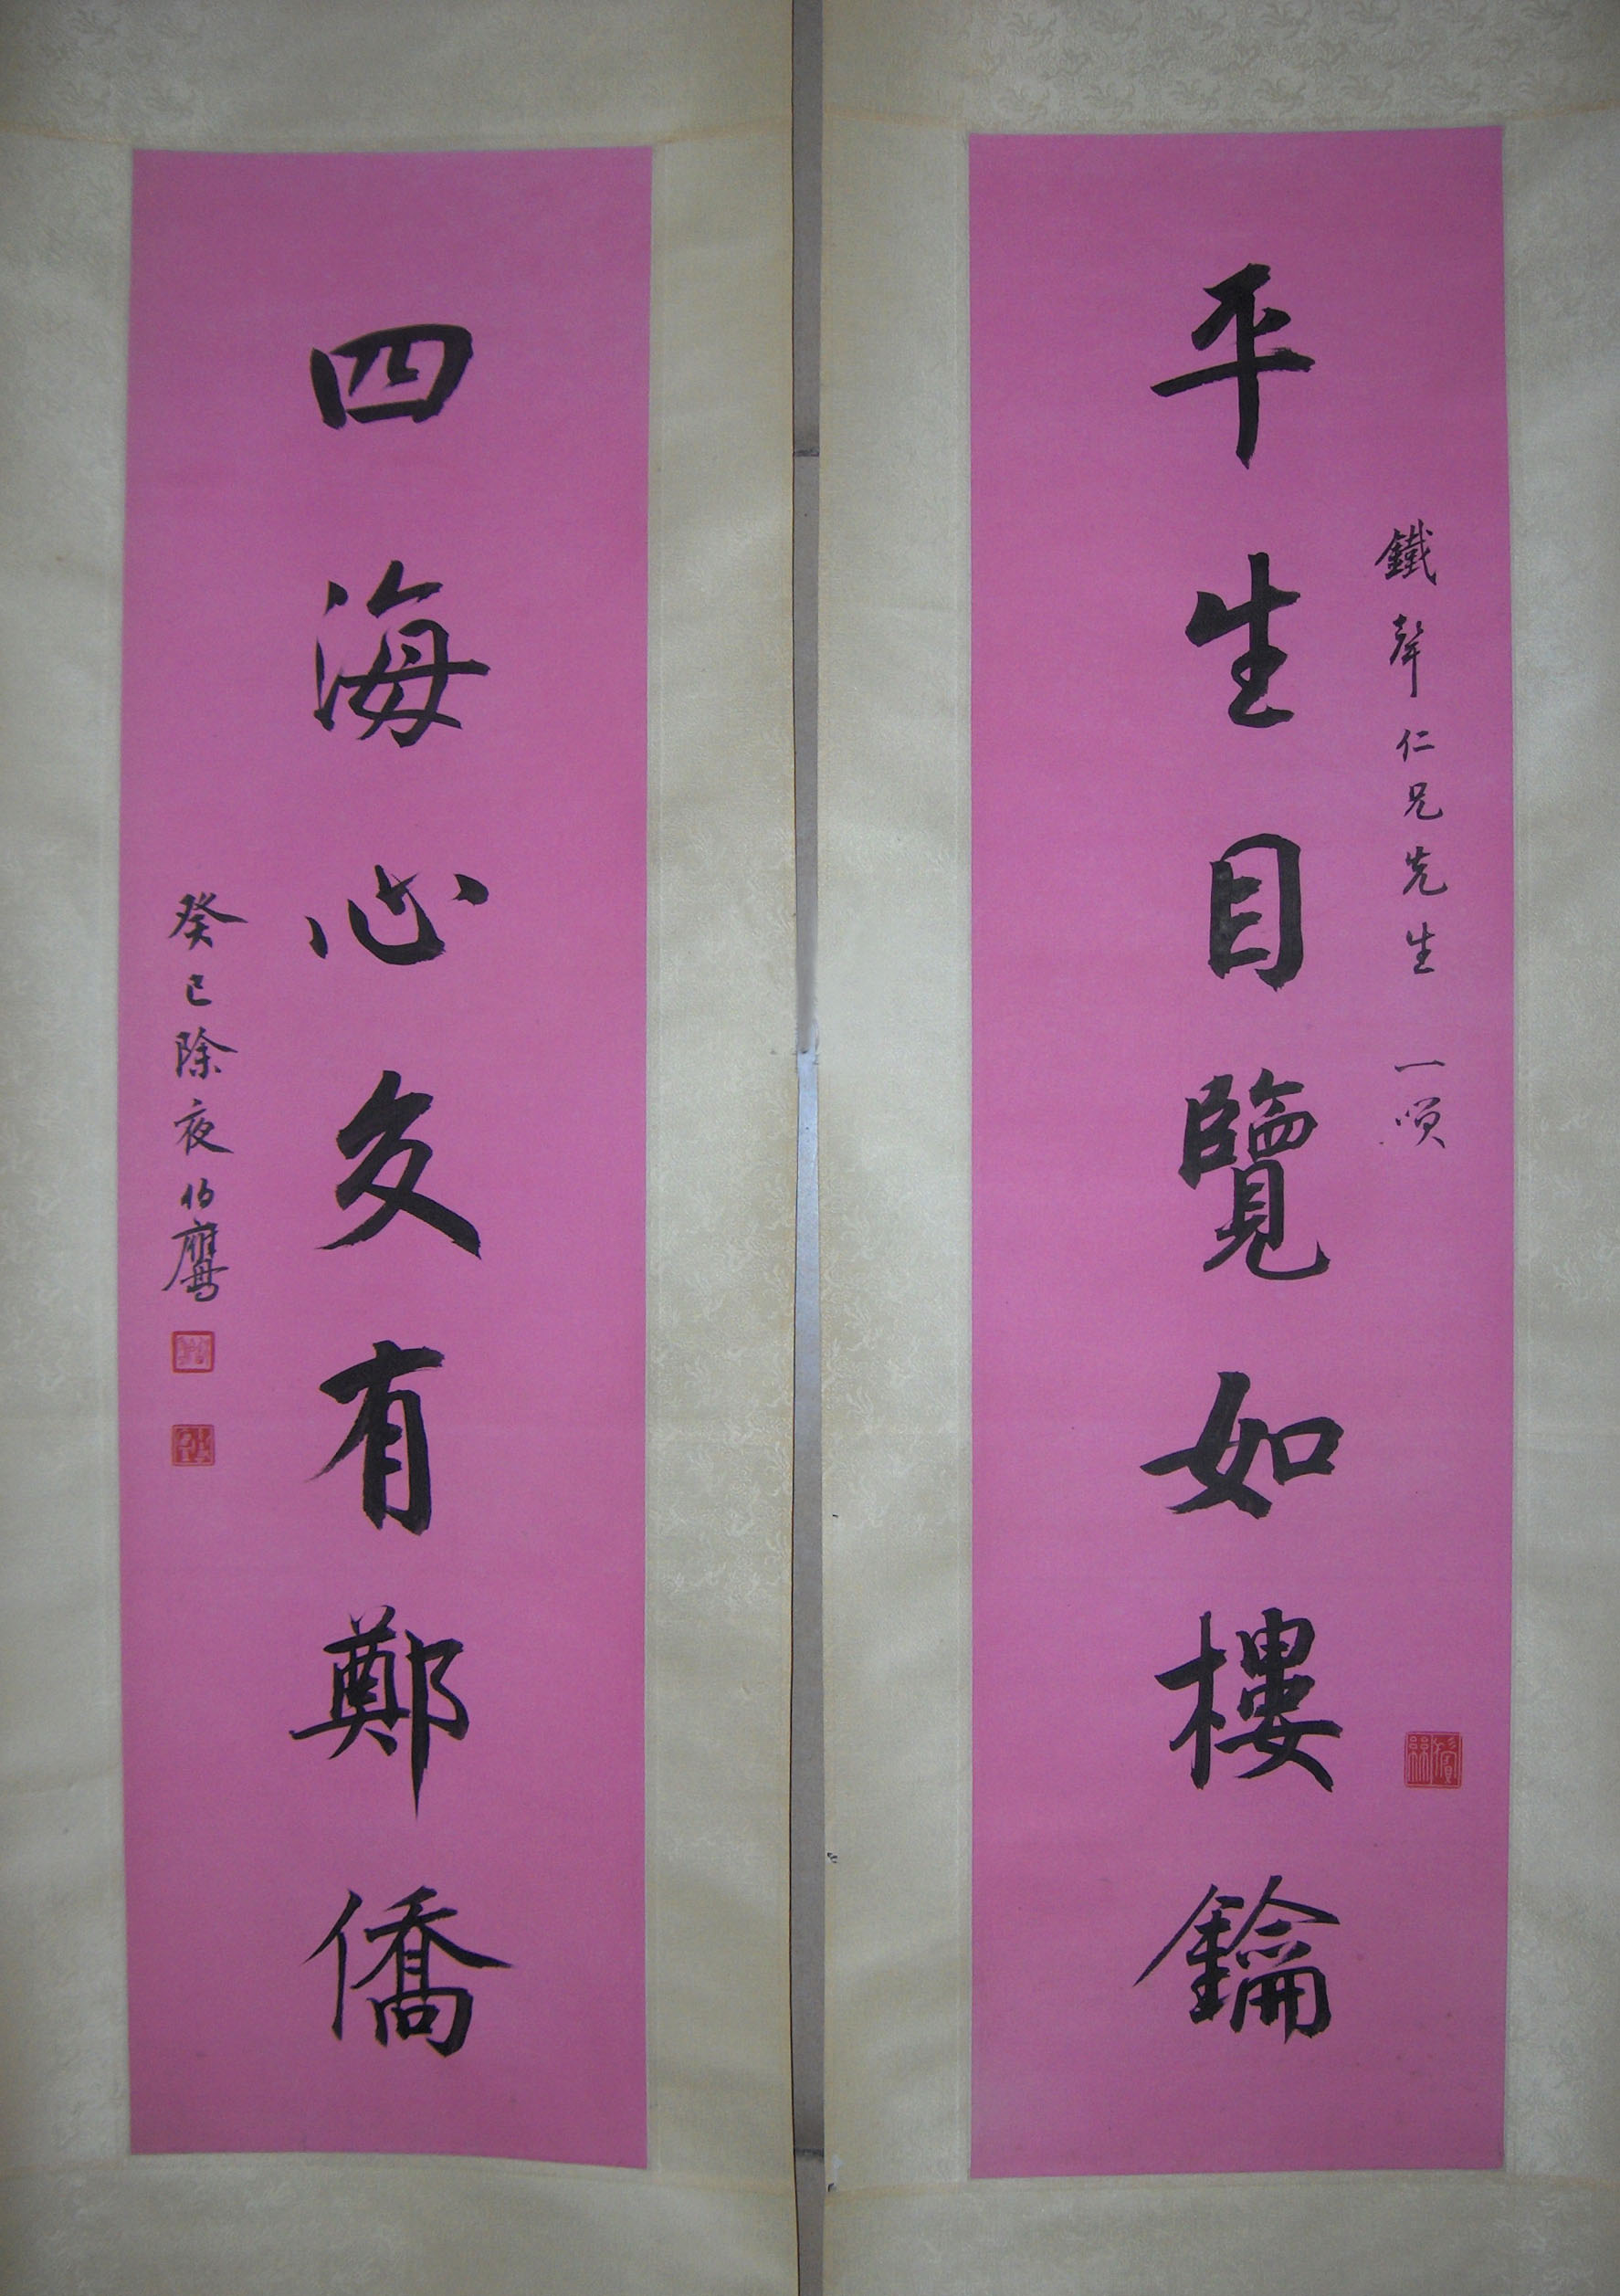 鐵聲仁兄先生 一笑
平生目覽如樓鑰
四海心交有鄭僑
癸巳除夜伯鷹